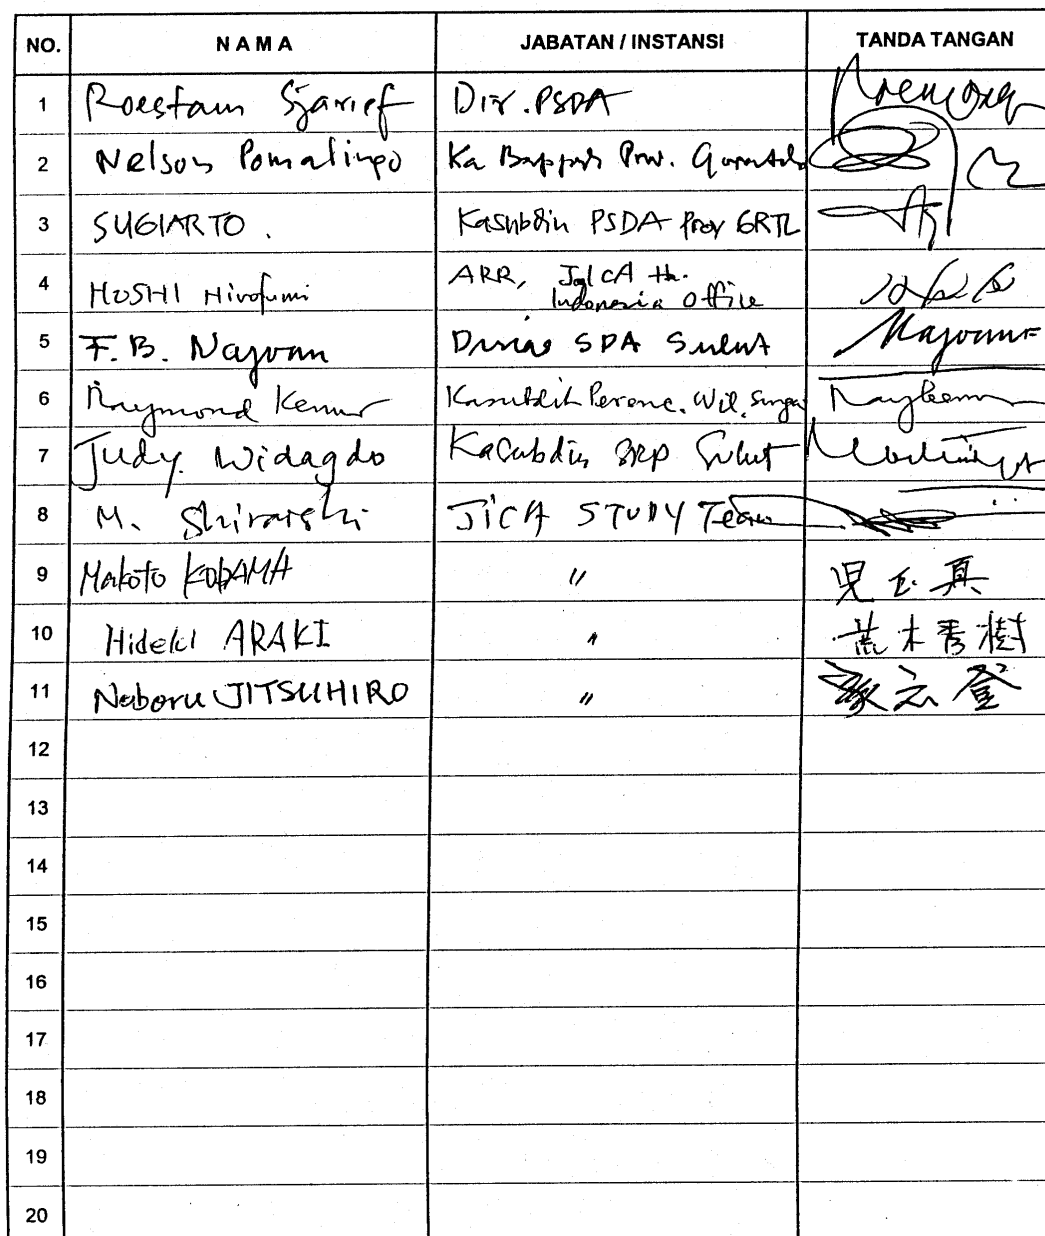 NO. NAMA JABATAN / INSTANSI TANDA TANGAN
1 Roestam Sjarief Dir. PSDA
2 Nelson Pomalingo Ka Bappeda Prov. Gorontalo
3 SUGIARTO. Kasubdin PSDA Prov GRTL
4 HOSHI Hirofumi ARR, JICA
Indonesia Office
5 F.B. Najoan Dinas SDA Sulut
6 Raymond Kasubdit Perenc. Wil. Sungai
7 Judy Widagdo Kasubdin Sulut
8 M. Shiraishi JICA STUDY Team
9 Makoto KODAMA 〃 児玉真
10 Hideki ARAKI 〃 荒木秀樹
11 Noboru JITSUHIRO 〃 登
12
13
14
15
16
17
18
19
20